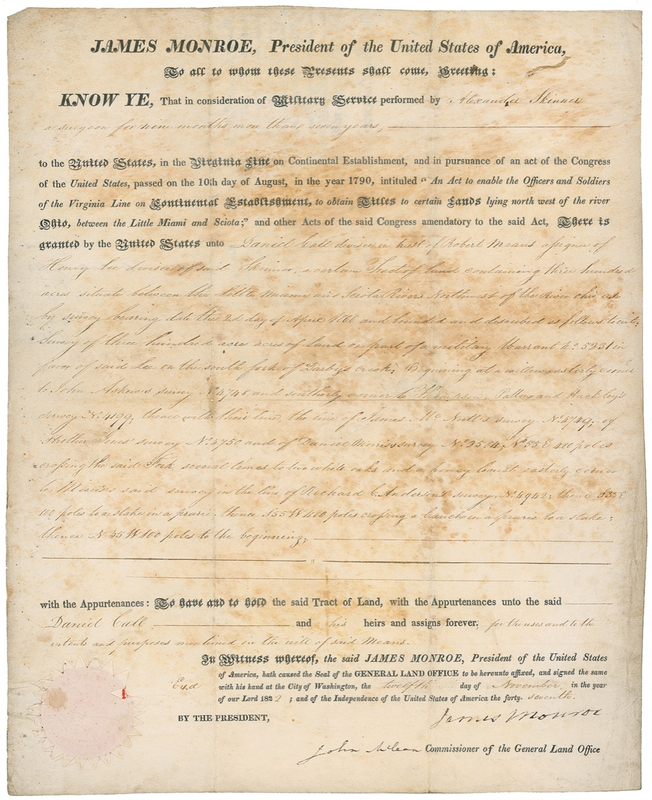 JAMES MONROE, President of the United States of America,
To all to whom these Presents shall come, Greeting:
KNOW YE, That in consideration of Military Service performed by Alexander Skinner
a surgeon for nine months more than seven years,
to the United States, in the Virginia Line on Continental Establishment, and in pursuance of an act of the Congress
of the United States, passed on the 10th day of August, in the year 1790, intituled "An Act to enable the Officers and Soldiers
of the Virginia Line on Continental Establishment, to obtain Titles to certain Lands lying north west of the river
Ohio, between the Little Miami and Sciota;" and other Acts of the said Congress amendatory to the said Act, There is
granted by the United States unto Daniel Call devisee in trust of Robert Means assignee of
Henry Lee devisee of said Skinner, a certain Tract of Land containing three hundred
acres situate between the Little Miami and Sciota Rivers Northwest of the River Ohio as
by survey bearing date the day of April and bounded and described as follows to wit;
Survey of three hundred acres of land on part of a military Warrant No 5331 in
favor of said Lee on the south fork of Darby's creek; Beginning at easterly corner
to John survey No and southerly corner to
survey No thence with their line, the line of James survey No of
survey No 4750 and of Daniel survey No N 55 E 400 poles
crossing the said Fork several times to two white oaks and a honey locust easterly corner
to said survey in the line of Richard C Anderson's survey No 4942; thence
poles to a stake in a prairie thence S 55 W 400 poles crossing a branch in a prairie to a stake;
thence N 35 W 100 poles to the beginning,
with the Appurtenances: To have and to hold the said Tract of Land, with the Appurtenances unto the said
Daniel Call and his heirs and assigns forever, for the uses and to the
intents and purposes mentioned in the will of said Means.
In Witness whereof, the said JAMES MONROE, President of the United States
of America, hath caused the Seal of the GENERAL LAND OFFICE to be hereunto affixed, and signed the same
with his hand at the City of Washington, the twelfth day of November in the year
of our Lord 1822; and of the Independence of the United States of America the forty-seventh.
BY THE PRESIDENT, James Monroe
John McLean Commissioner of the General Land Office